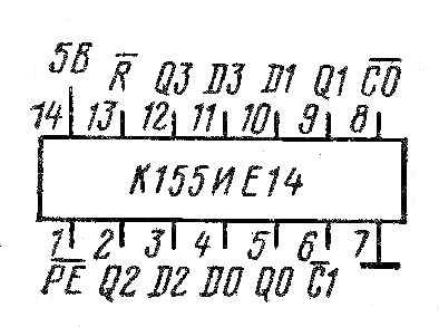 5В R̅ Q3 D3 D1 Q1 C̅0̅
14 13 12 11 10 9 8
К155ИЕ14
1 2 3 4 5 6 7
P̅E̅ Q2 D2 D0 Q0 C̅1